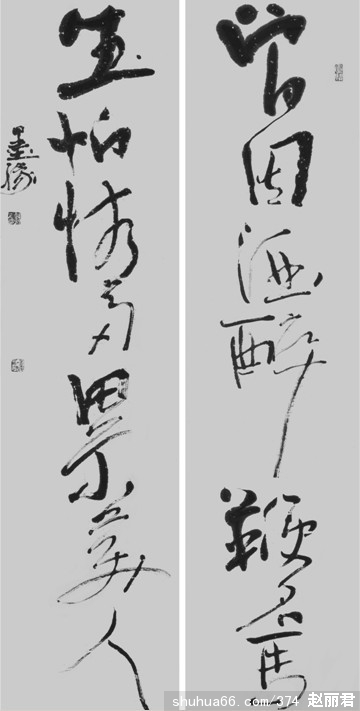 曾因酒醉鞭名馬
生怕情多累美人
shuhua66.com/374 赵丽君